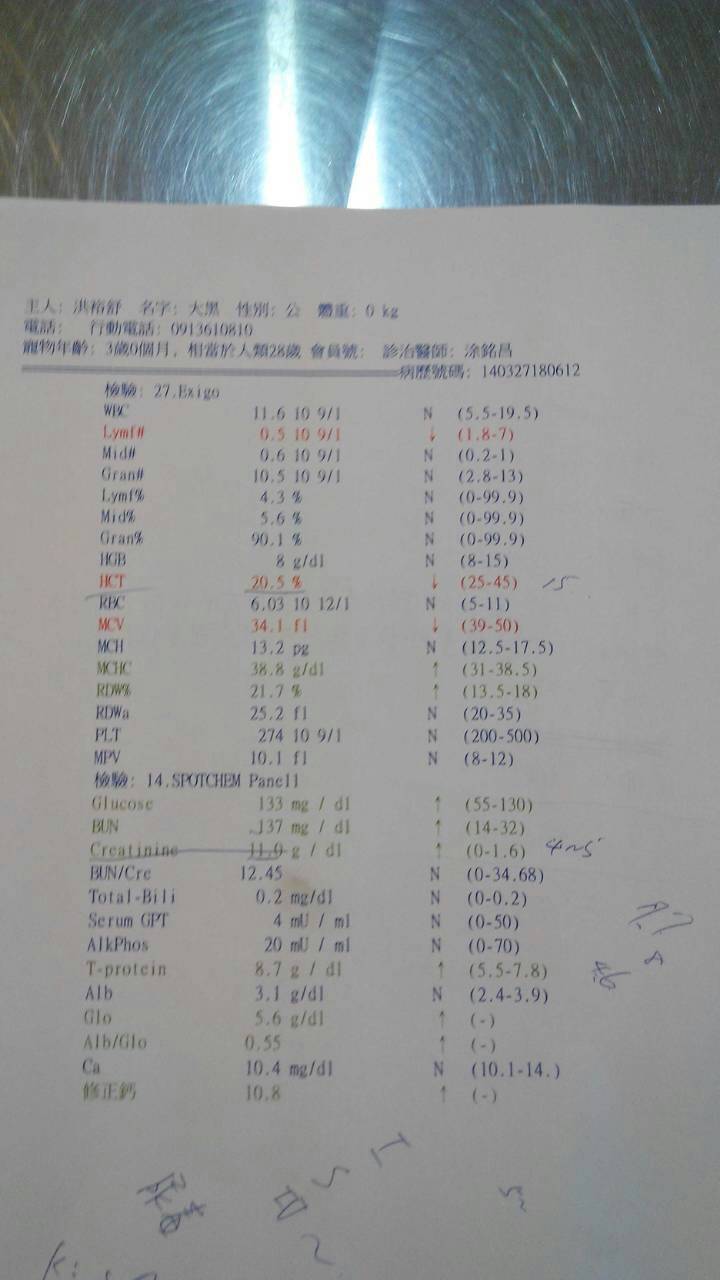 主人: 洪裕舒 名字: 大黑 性別: 公 體重: 0 kg
電話: 行動電話: 0913610810
寵物年齡: 3歲0個月, 相當於人類28歲 會員號: 診治醫師: 涂銘昌
病歷號碼: 140327180612
檢驗: 27.Exigo
WBC 11.6 10 9/l N (5.5-19.5)
Lymf# 0.5 10 9/l ↓ (1.8-7)
Mid# 0.6 10 9/l N (0.2-1)
Gran# 10.5 10 9/l N (2.8-13)
Lymf% 4.3 % N (0-99.9)
Mid% 5.6 % N (0-99.9)
Gran% 90.1 % N (0-99.9)
HGB 8 g/dl N (8-15)
HCT 20.5 % ↓ (25-45) 15
RBC 6.03 10 12/l N (5-11)
MCV 34.1 fl ↓ (39-50)
MCH 13.2 pg N (12.5-17.5)
MCHC 38.8 g/dl ↑ (31-38.5)
RDW% 21.7 % ↑ (13.5-18)
RDWa 25.2 fl N (20-35)
PLT 274 10 9/l N (200-500)
MPV 10.1 fl N (8-12)
檢驗: 14.SPOTCHEM Panel1
Glucose 133 mg / dl ↑ (55-130)
BUN 137 mg / dl ↑ (14-32)
Creatinine 11.0 g / dl ↑ (0-1.6) 4~5
BUN/Cre 12.45 N (0-34.68)
Total-Bili 0.2 mg/dl N (0-0.2)
Serum GPT 4 mU / ml N (0-50)
AlkPhos 20 mU / ml N (0-70)
T-protein 8.7 g / dl ↑ (5.5-7.8)
Alb 3.1 g/dl N (2.4-3.9)
Glo 5.6 g/dl ↑ (-)
Alb/Glo 0.55 ↑ (-)
Ca 10.4 mg/dl N (10.1-14.)
修正鈣 10.8 ↑ (-)
尿毒